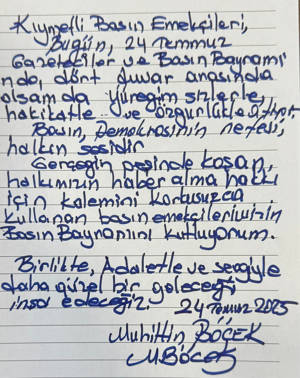 Kıymetli Basın Emekçileri,
Bugün, 24 Temmuz
Gazeteciler ve Basın Bayramı
nda, dört duvar arasında
olsam da yüreğim sizlerle,
hakikatle ve özgürlükle atıyor.
Basın, Demokrasinin nefesi,
halkın sesidir
Gerçeğin peşinde koşan,
halkımızın haber alma hakkı
için kalemini korkusuzca
kullanan basın emekçilerimizin
Basın Bayramını kutluyorum.
Birlikte, Adaletle ve sevgiyle
daha güzel bir geleceği
inşa edeceğiz. 24 Temmuz 2025
Muhittin BÖCEK
M.BÖCEK